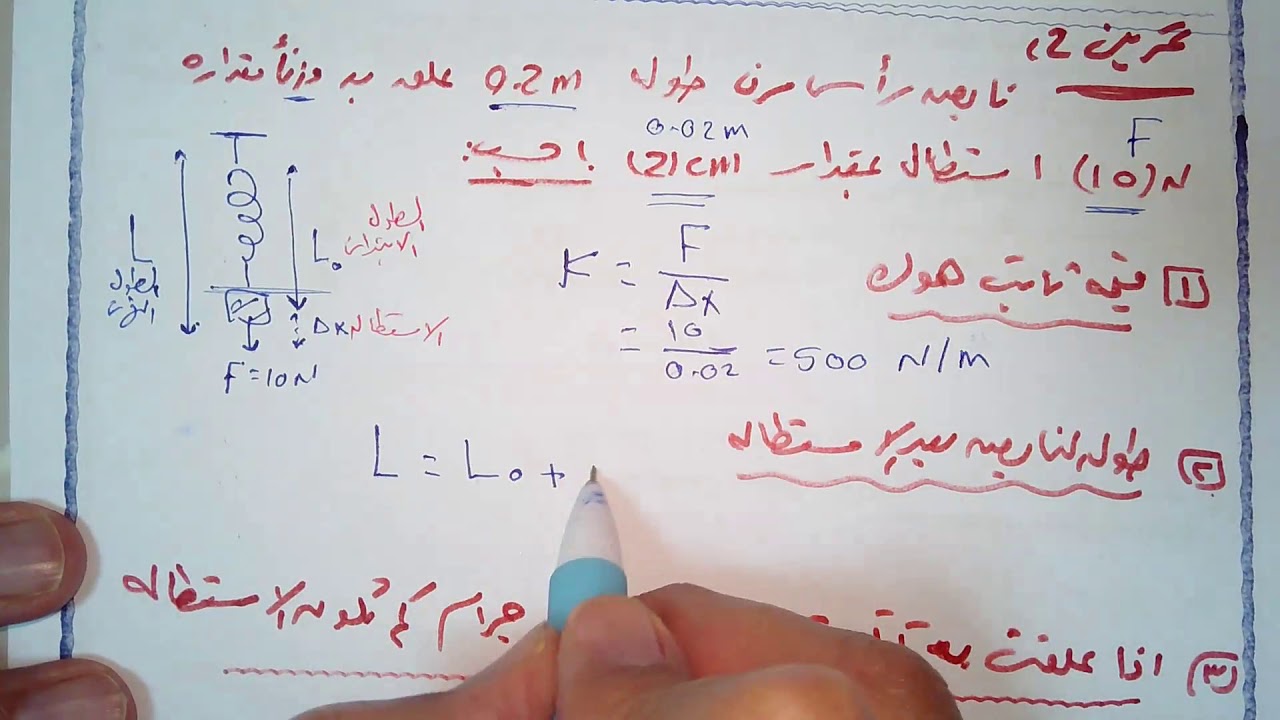 تمرين 2،
نابض رأسي مرن طوله 0.2m علق به وزناً مقداره
F
0.02m
(10)N استطال بمقدار (2)cm احسب:
1 قيمة ثابت هوك
K = F / Δx
= 10 / 0.02 = 500 N/m
L
الطول
النهائي
L₀
الطول
الابتدائي
Δx الاستطالة
F = 10N
٢ طول النابض بعد الاستطالة
L = L₀ +
٣ اذا علقت به جرام كم تكون الاستطالة